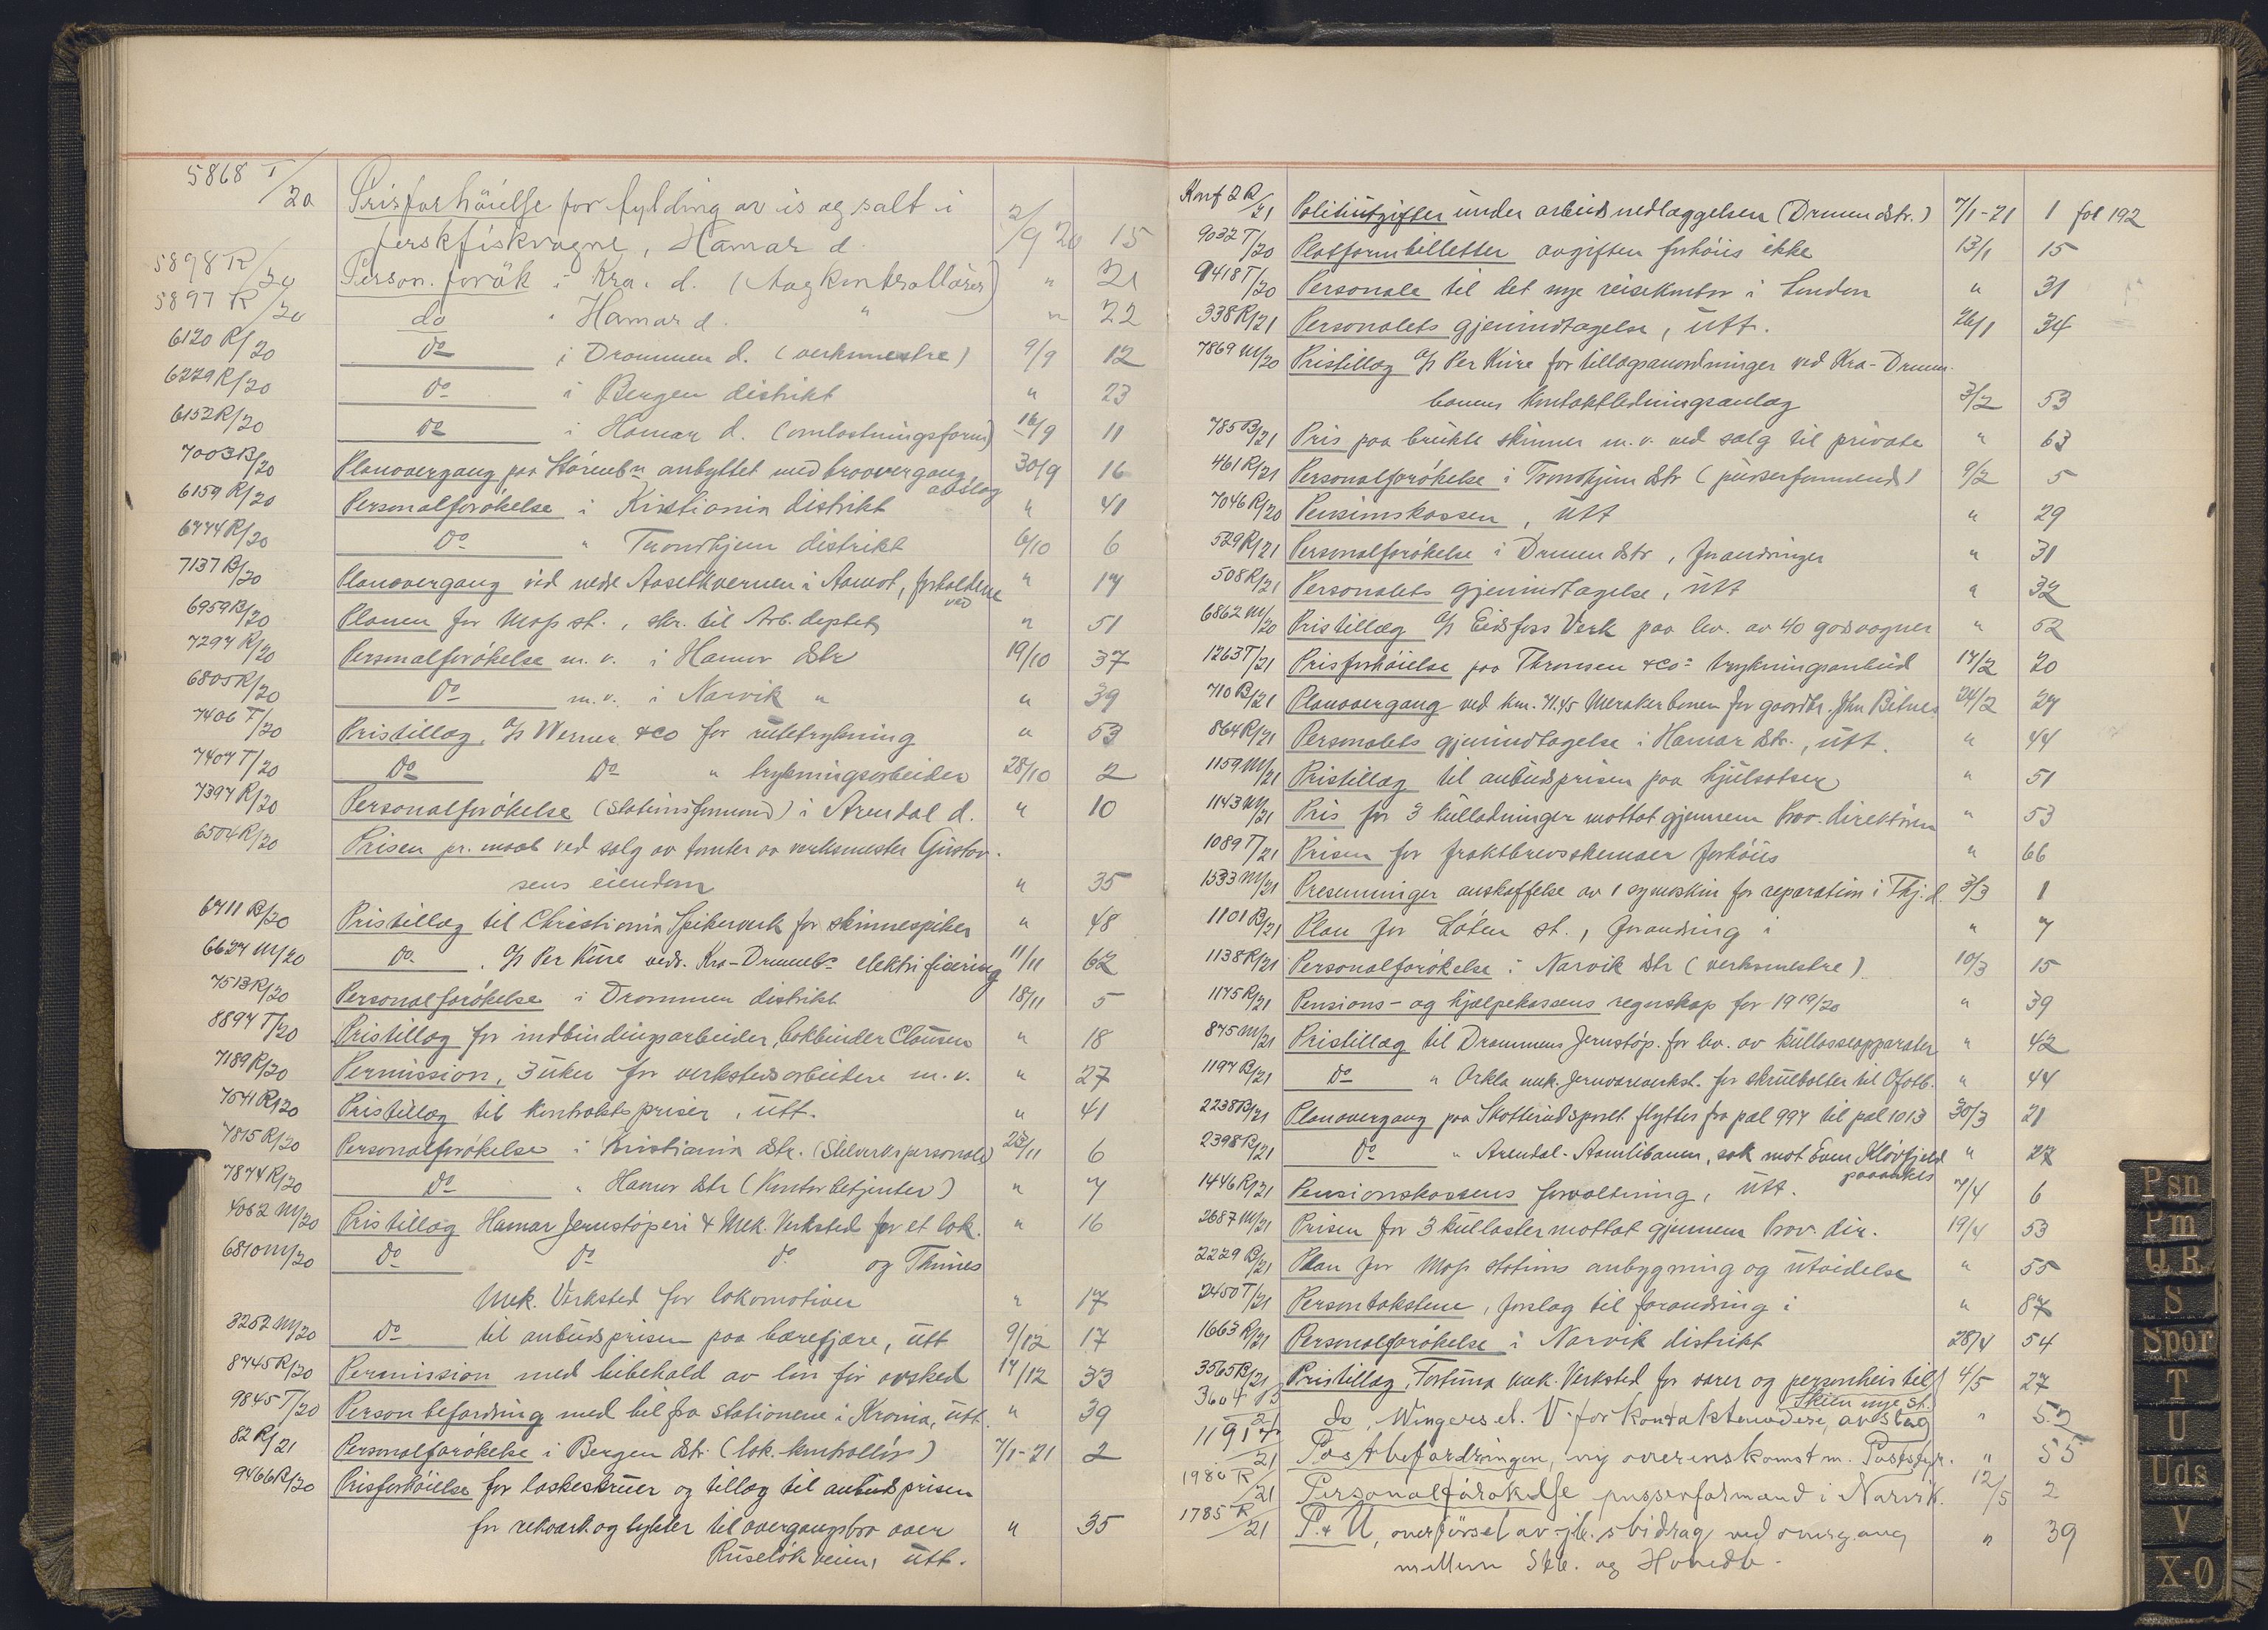 5868 T/20 Prisforhöielse for fylding av is og salt i
ferskfiskvagne, Hamar d. 2/9 20 15
5898 R/20 Person.forøk i Kra. d. (Togkontrollører) " 21
5897 R/20 do " Hamar d. " " 22
6120 R/20 Do i Drammen d. (verksmestre) 9/9 12
6229 R/20 Do i Bergen distrikt " 23
6152 R/20 Do i Hamar d. (omlastningsform) 16/9 11
7003 B/20 Planovergang paa Størenbn ombyttet med broovergang 30/9 16
avslag
6159 R/20 Personalforökelse i Kristiania distrikt " 41
6774 R/20 Do " Trondhjem distrikt 6/10 6
7137 B/20 Planovergang ved nedre Aasetkvernen i Aamot, forholdene " 17
ved
6959 B/20 Planen for Moss st., skr. til Arb. deptet " 51
7297 R/20 Personalforökelse m. v. i Hamar Dstr 19/10 37
6805 R/20 Do m. v. i Narvik " " 39
7406 T/20 Pristillæg A/S Werner & Co for rutetrykning " 53
7407 T/20 Do Do " trykningsarbeider 28/10 2
7397 R/20 Personalforökelse (stationsformænd) i Arendal d. " 10
6504 R/20 Prisen pr. maal ved salg av tomter av verksmester Gustav-
sens eiendom " 35
6711 B/20 Pristillæg til Christiania Spikerverk for skinnespiker " 48
6627 M/20 Do. A/S Per Kure vedr. Kra-Drammenb. elektrifisering 11/11 62
7513 R/20 Personalforökelse i Drammen distrikt 18/11 5
8897 T/20 Pristillæg for indbindingsarbeider, bokbinder Clausen " 18
7189 R/20 Permission, 3 uker for verkstedsarbeidere m. v. " 27
7541 R/20 Pristillæg til kontraktspriser, utt. " 41
7815 R/20 Personalforökelse i Kristiania Dstr. (Stellverkspersonale) 23/11 6
7874 R/20 Do " Hamar Dstr (Kontorbetjenter) " 7
4062 M/20 Pristillæg Hamar Jernstøperi & Mek. Verksted for et lok. " 16
6810 M/20 Do Do Do og Thunes
Mek. Verksted for lokomotiver " 17
3252 M/20 Do til anbudsprisen paa bærefjære, utt 9/12 17
8745 R/20 Permission med bibehold av løn før avsked 17/12 33
9845 T/20 Personbefordring med bil fra stationene i Krania, utt. " 39
82 R/21 Personalforökelse i Bergen Dstr. (lok.kontrollör) 7/1-21 2
9466 R/20 Prisforhöielse for laskeskruer og tillæg til anbudsprisen
for rekverk og lykter til overgangsbro over " 35
Ruselökveien, utt.
Konf 2 R/21 Politiutgifter under arbeidsnedlæggelsen (Drmen dstr.) 7/1-21 1 fol 192
9032 T/20 Platformbilletter avgiften forhöies ikke 13/1 15
9418 T/20 Personale til det nye reisekontor i London " 31
338 R/21 Personalets gjenindtagelse, utt. 26/1 34
7869 M/20 Pristillæg A/S Per Kure for tillægsanordninger ved Kra-Drmm-
banens kontaktledningsanlæg 3/2 53
785 B/21 Pris paa brukte skinner m. v. ved salg til private " 63
461 R/21 Personalforökelse i Trondhjem Dstr (pusserformænd) 9/2 5
7046 R/20 Pensionskassen, utt " 29
529 R/21 Personalforökelse i Drmen Dstr, forandringer " 31
508 R/21 Personalets gjenindtagelse, utt " 32
6862 M/20 Pristillæg A/S Eidsfoss Verk paa lev. av 40 godsvogner " 52
1263 T/21 Prisforhöielse paa Thronsen & Co's trykningsanbud 17/2 20
710 B/21 Planovergang ved km. 71.45 Merakerbanen for gaardbr. John Bitnes 24/2 27
864 R/21 Personalets gjenindtagelse i Hamar Dstr., utt. " 44
1159 M/21 Pristillæg til anbudsprisen paa hjulsatser " 51
1143 M/21 Pris for 3 kulladninger mottat gjennem Prov. direktören " 53
1089 T/21 Prisen for fraktbrevsskemaer forhöies " 66
1533 M/21 Presenninger anskaffelse av 1 symaskin for reparation i Thj. d. 3/3 1
1101 B/21 Plan for Löten st., forandring i " 7
1138 R/21 Personalforökelse i Narvik Dstr (verksmestre) 10/3 15
1175 R/21 Pensions- og hjælpekassens regnskap for 1919/20 " 39
875 M/21 Pristillæg til Drammens Jernstøp. for lev. av kullosseapparater " 42
1197 B/21 Do " Orkla mek. Jernvareverkst. for skruebolter til Ofotb. " 44
2238 B/21 Planovergang paa Skotterudsporet flyttes fra pæl 997 til pæl 1013 30/3 21
2398 B/21 Do " Arendal-Aamlibanen, sak mot Even Klövfjeld " 27
paaankes
1446 R/21 Pensionskassens forvaltning, utt. 7/4 6
2687 M/21 Prisen for 3 kullaster mottat gjennem Prov. dir. 19/4 53
2229 B/21 Plan for Moss stations ombygning og utvidelse " 55
2450 T/21 Persontakstene, forslag til forandring i " 87
1663 R/21 Personalforökelse i Narvik distrikt 28/4 54
3565 B/21 Pristillæg, Fortuna mek. Verksted for varer og personheis til 4/5 27
Skien nye st.
3604 B/21 do, Wingers el. V. for kontaktmodere, avslag " 52
1191 T/21 Postbefordringen, ny overenskomst m. Poststyr. " 55
1980 R/21 Personalforökelse pusserformand i Narvik. 12/5 2
1785 R/21 P. & U, overförsel av jb.s bidrag ved overgang " 39
mellem Stb. og Hovedb.
Psn
Pm
Q R
S
Spor
T
U
Uds
V
X-Ø